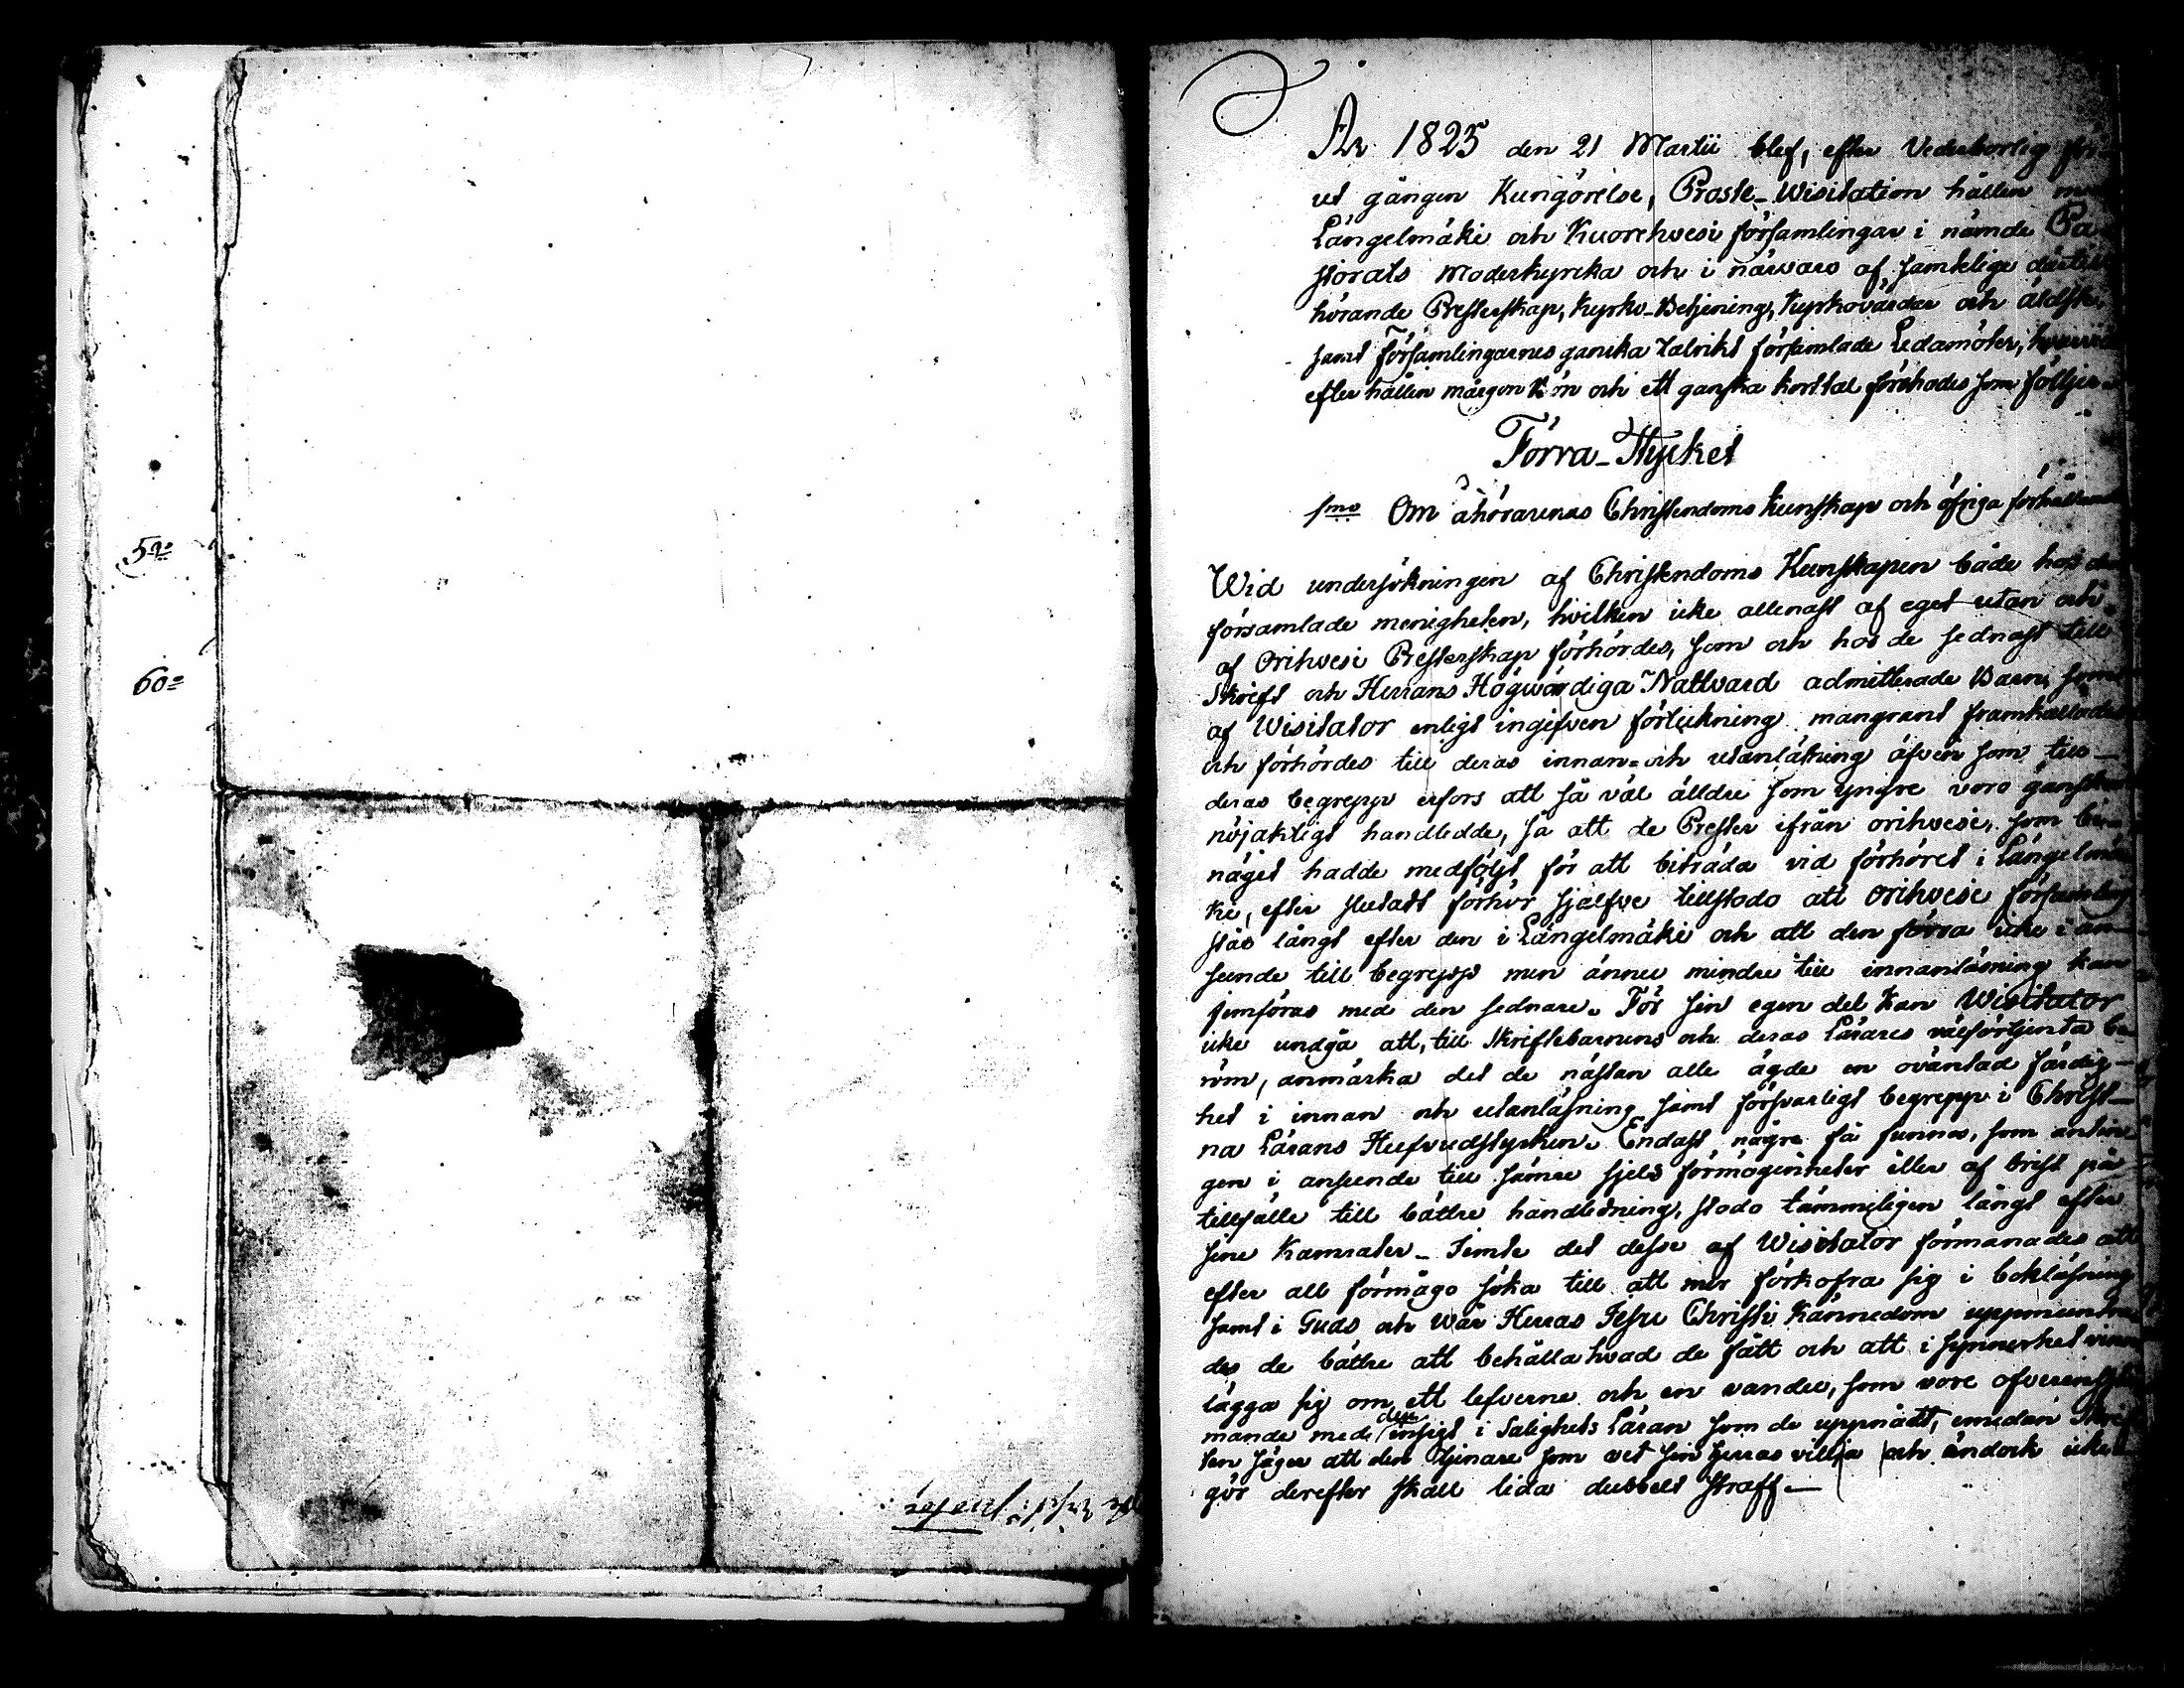 52
60
År 1825 den 21 Martii blef, efter Vederbörlig för-
ut gången Kungörelse, Prosle-Wisitation hållen
Längelmäki och Kuorehvesi församlingar i nämde Pa-
storats Moderkyrcka och i närvaro af samtelige
hörande Presterskap, Kyrko-Betjening, Kyrkovärdar och äldste,
samt Församlingarnes ganska talrikt församlade Ledamöter,
efter hållen mårgon Bön och ett ganska kort tal förehades som följer
Förra-Stycket
1mo Om åhörarenas Christendoms kunskap och öfriga förhållande
Wid undersökningen af Christendoms Kunskapen både hos den
församlade menigheten, hvilken icke allenast af eget utan och
af Orihvesi Presterskap förhördes, som och hos de sednast till
Skrift och Herrans Högwärdiga Nattvard admitterade Barn, som
af Wisitator enligt ingifven förteckning mangrant framkallades
och förhördes till deras innan- och utanläsning äfven som till
deras begrepp erfors att så väl äldre som yngre voro ganska
nöjaktigt handledde, så att de Prester ifrån orihvesi, som
något hadde medföljt för att biträda vid förhöret i Längelmä-
ki, efter slutadt förhör sjelfve tillstodo att Orihvesi församling
står långt efter den i Längelmäki och att den förra icke i an-
seende till begrepp men ännu mindre till innanläsning kan
jemföras med den sednare. För sin egen del kan Wisitator
icke undgå att, till Skriftebarnens och deras Lärares välförtjenta be-
röm, anmärka det de nästan alle ägde en oväntad färdig-
het i innan och utanläsning samt försvarligt begrepp i Christ-
na Lärans Hufvudstycken. Endast några få funnos, som antin-
gen i anseende till sämre själs förmögenheter eller af brist på
tillfälle till bättre handledning, stodo tämmeligen långt efter
sine Kamrater. Jemte det desse af Wisitator förmanades att
efter all förmågo söka till att mer förkofra sig i bokläsning
samt i Guds och Wår Herras Jesu Christi Kännedom uppmuntra-
des de bättre att behålla hvad de fått och att i synnerhet vinn-
lägga sig om ett lefverne och en vandel, som vore öfverenstäm-
mande med den insigt i Salighets Läran som de uppnått, emedan Skrif-
ten säger att den tjenare som vet sin herras vilja och ändock icke
gör derefter skall lida dubbelt straff.